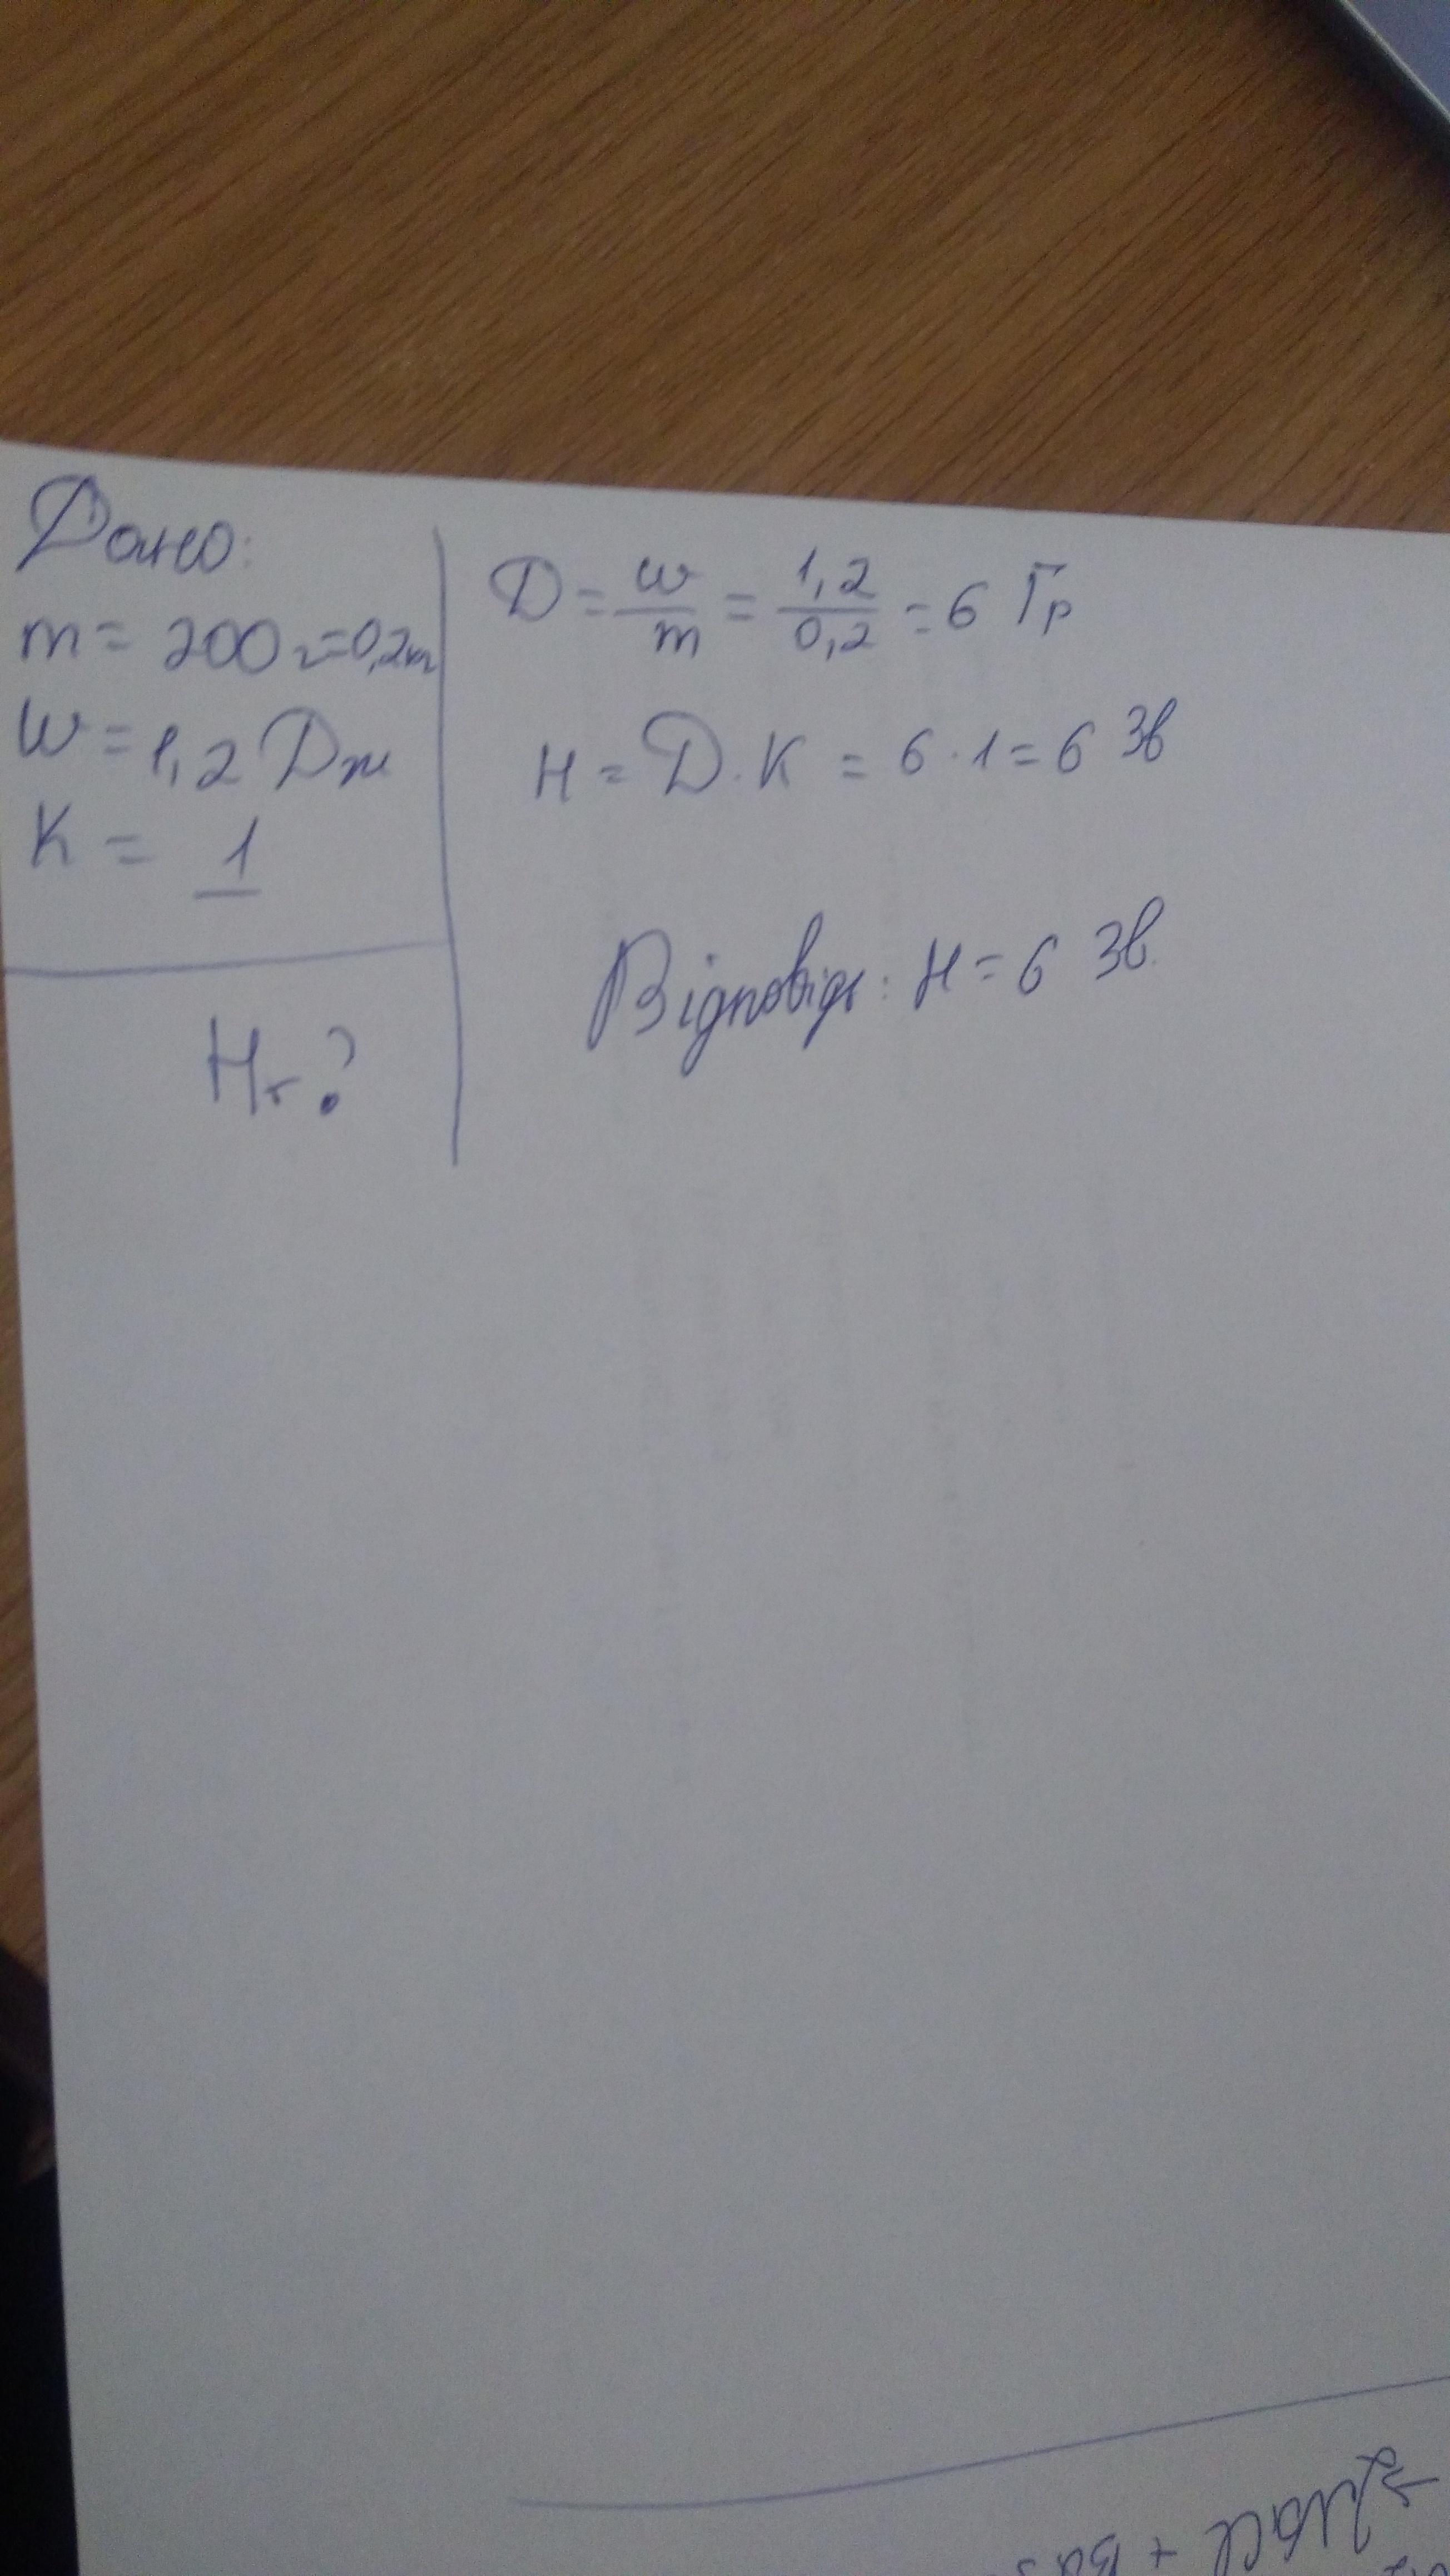 Дано:
m = 200 г = 0,2 кг
W = 1,2 Дж
K = 1
H - ?
D = W/m = 1,2/0,2 = 6 Гр
H = D · K = 6 · 1 = 6 Зв
Відповідь: H = 6 Зв.
→ 2NaCl + BaS